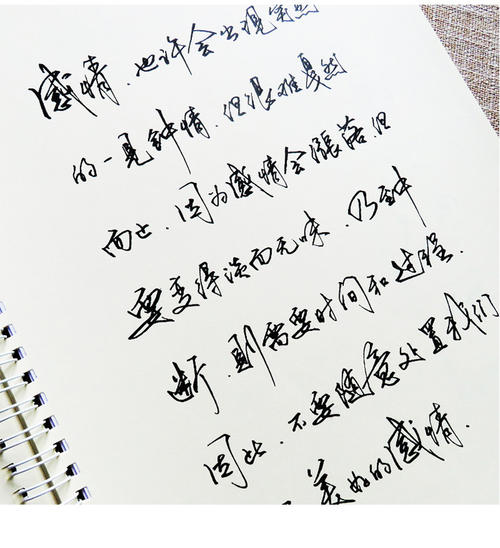 感情，也许会出现突然
的一见钟情，但很难戛然
而止，因为感情会涨落，但
要变得淡而无味，乃至中
断，则需要时间和过程．
因此，不要随意处置我们
美好的感情．